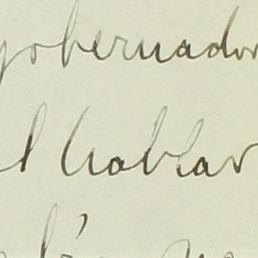 gobernador
l hablar